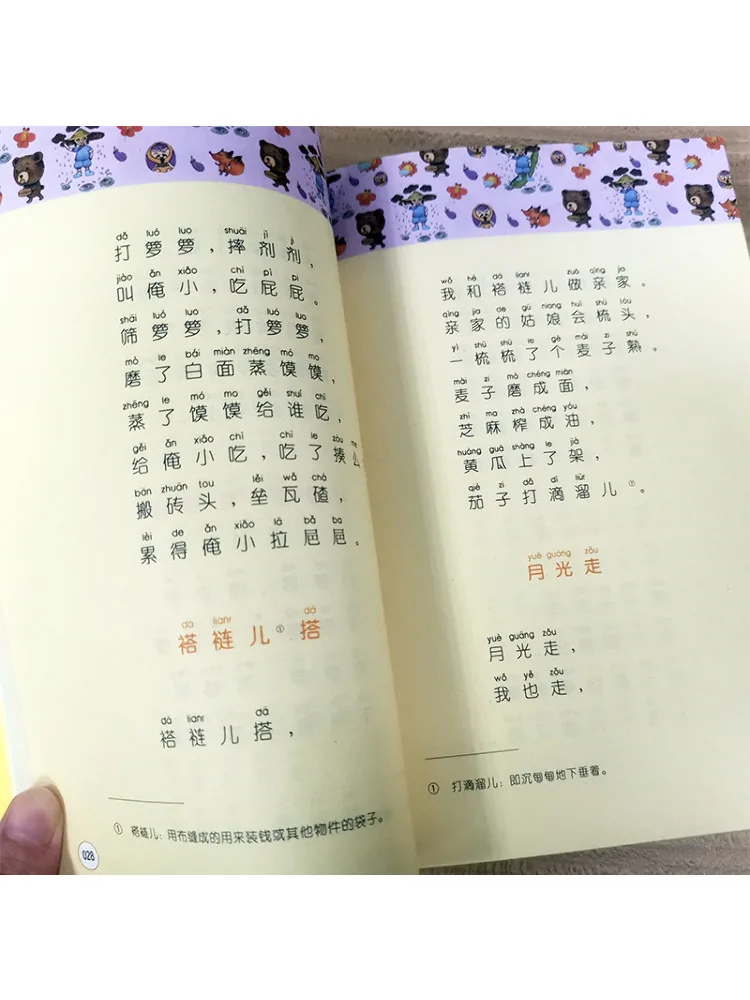 dǎ luó luó shuāi jì ji
打箩箩，摔剂剂，
jiào ǎn xiǎo chī pì pi
叫俺小，吃屁屁。
shāi luó luó dǎ luó luó
筛箩箩，打箩箩，
mò le bái miàn zhēng mó mo
磨了白面蒸馍馍，
zhēng le mó mo gěi shuí chī
蒸了馍馍给谁吃，
gěi ǎn xiǎo chī chī le zòu me
给俺小吃，吃了揍么
bān zhuān tou lěi wǎ chā
搬砖头，垒瓦碴，
lèi de ǎn xiǎo lā bǎ ba
累得俺小拉㞎㞎。
dā lianr dā
褡裢儿①搭
dā lianr dā
褡裢儿搭，
① 褡裢儿：用布缝成的用来装钱或其他物件的袋子。
028
wǒ hé dā lianr zuò qìng jia
我和褡裢儿做亲家。
qìng jia de gū niang huì shū tóu
亲家的姑娘会梳头，
yì shū shū le gè mài zi shú
一梳梳了个麦子熟。
mài zi mò chéng miàn
麦子磨成面，
zhī ma zhà chéng yóu
芝麻榨成油，
huáng guā shàng le jià
黄瓜上了架，
qié zi dǎ dī liūr
茄子打滴溜儿①。
yuè guāng zǒu
月光走
yuè guāng zǒu
月光走，
wǒ yě zǒu
我也走，
① 打滴溜儿：即沉甸甸地下垂着。